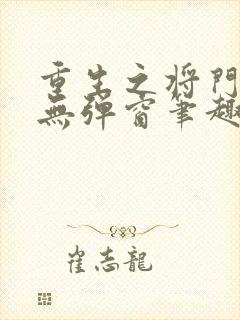 重生之将門
無弹窗筆趣
崔志龍